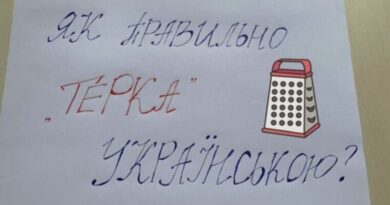 ЯК ПРАВИЛЬНО
„ТЕРКА"
УКРАЇНСЬКОЮ?